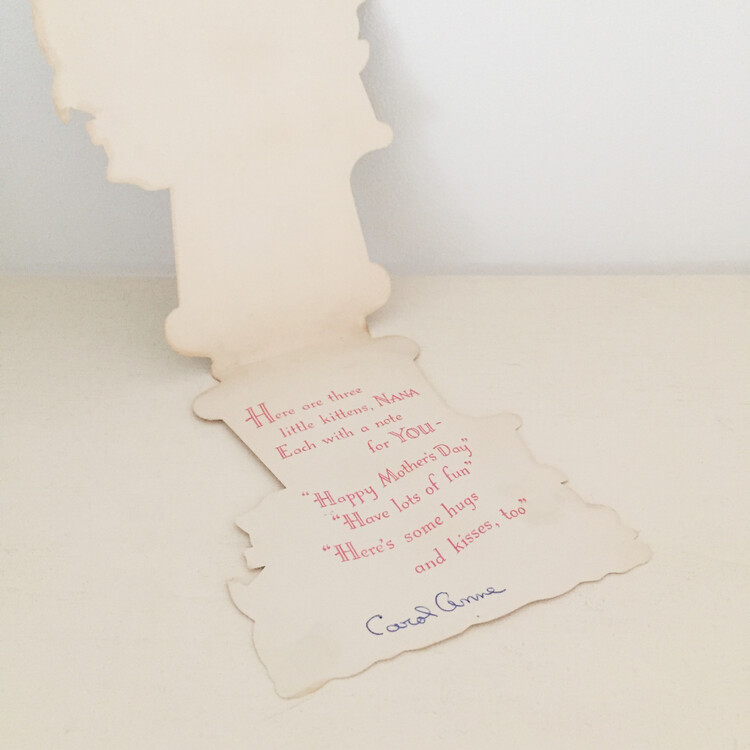 Here are three
little kittens, NANA
Each with a note
for YOU-
"Happy Mother's Day"
"Have lots of fun"
"Here's some hugs
and kisses, too"
Carol Anne